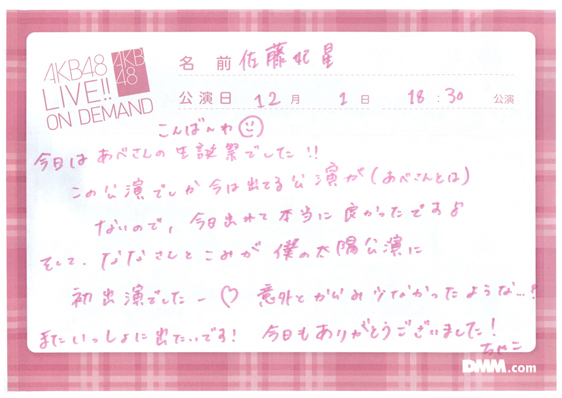 AKB48
LIVE!!
ON DEMAND
AKB
48
名前 佐藤妃星
公演日 12月 1日 18:30 公演
こんばんわ
今日は あべさんの生誕祭でした!!
この公演でしか今は出てる公演が(あべさんとは)
ないので、今日出れて本当に良かったですよ
そして、ななさんとこみが 僕の太陽公演に
初出演でしたー♡ 意外とからみ少なかったような…!
またいっしょに出たいです! 今日もありがとうございました!
ちゃこ
DMM.com